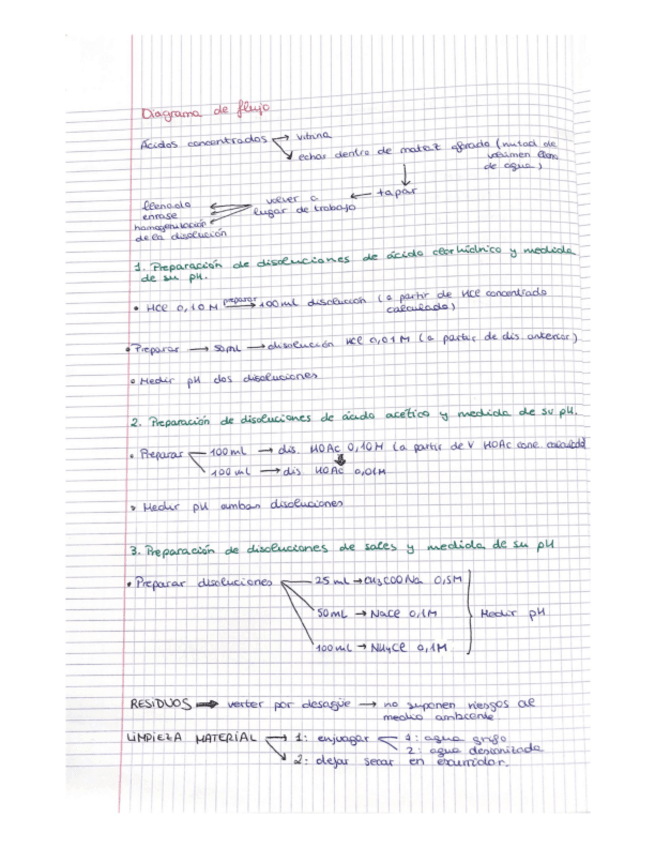 Diagrama de flujo
Ácidos concentrados → vitrina
↘ echar dentro de matraz aforado (mitad de
volumen lleno
de agua)
↓
← tapar
volver a
lugar de trabajo
llenado
enrase
homogenización
de la disolución
1. Preparación de disoluciones de ácido clorhídrico y medida
de su pH.
• HCl 0,10M preparar → 100 ml disolución (a partir de HCl concentrado
calculado)
• Preparar → 50mL → disolución HCl 0,01M (a partir de dis. anterior)
• Medir pH dos disoluciones
2. Preparación de disoluciones de ácido acético y medida de su pH.
• Preparar 100 ml → dis. HOAc 0,10M (a partir de V HOAc conc. calculado)
100 ml → dis HOAc 0,01M
• Medir pH ambas disoluciones
3. Preparación de disoluciones de sales y medida de su pH
• Preparar disoluciones 25 ml → CH3COONa 0,5M
50mL → NaCl 0,1M Medir pH
100 mL → NH4Cl 0,1M
RESIDUOS → verter por desagüe → no suponen riesgos al
medio ambiente
LIMPIEZA MATERIAL → 1: enjuagar 1: agua grifo
2: agua desionizada
2: dejar secar en escurridor.